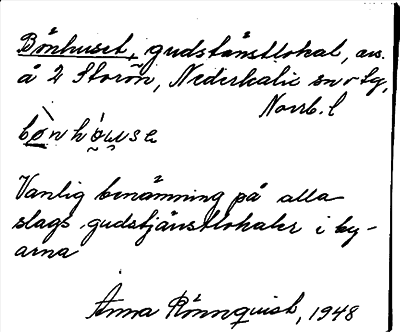 Bönhuset, gudstänstlokal, av.
å 2 Storön, Nederkalix sn o tg,
Norrb. l
bò̀nhòu̯se
Vanlig benämning på alla
slags gudstjänstlokaler i by-
arna
Anna Rönnquist, 1948